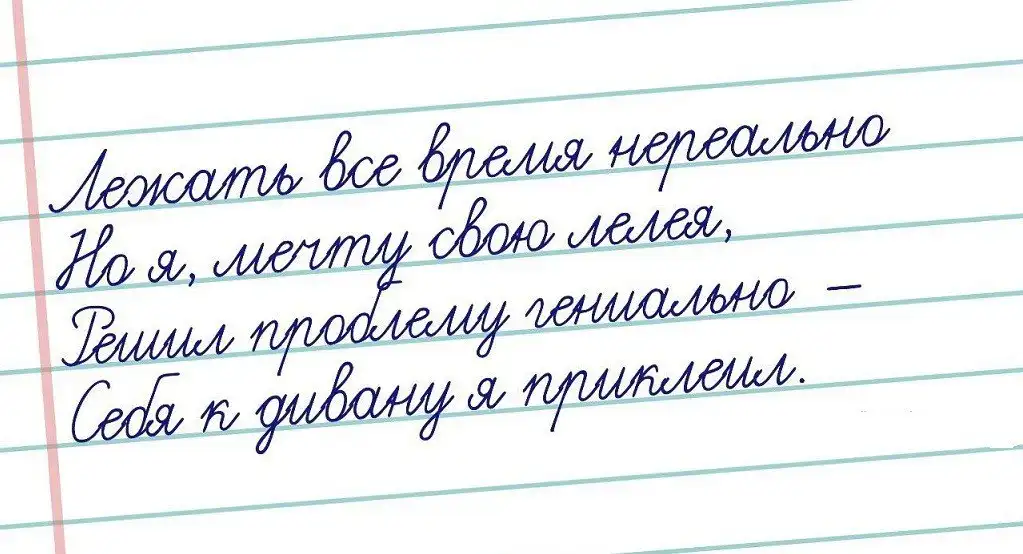 Лежать все время нереально
Но я, мечту свою лелея,
Решил проблему гениально –
Себя к дивану я приклеил.